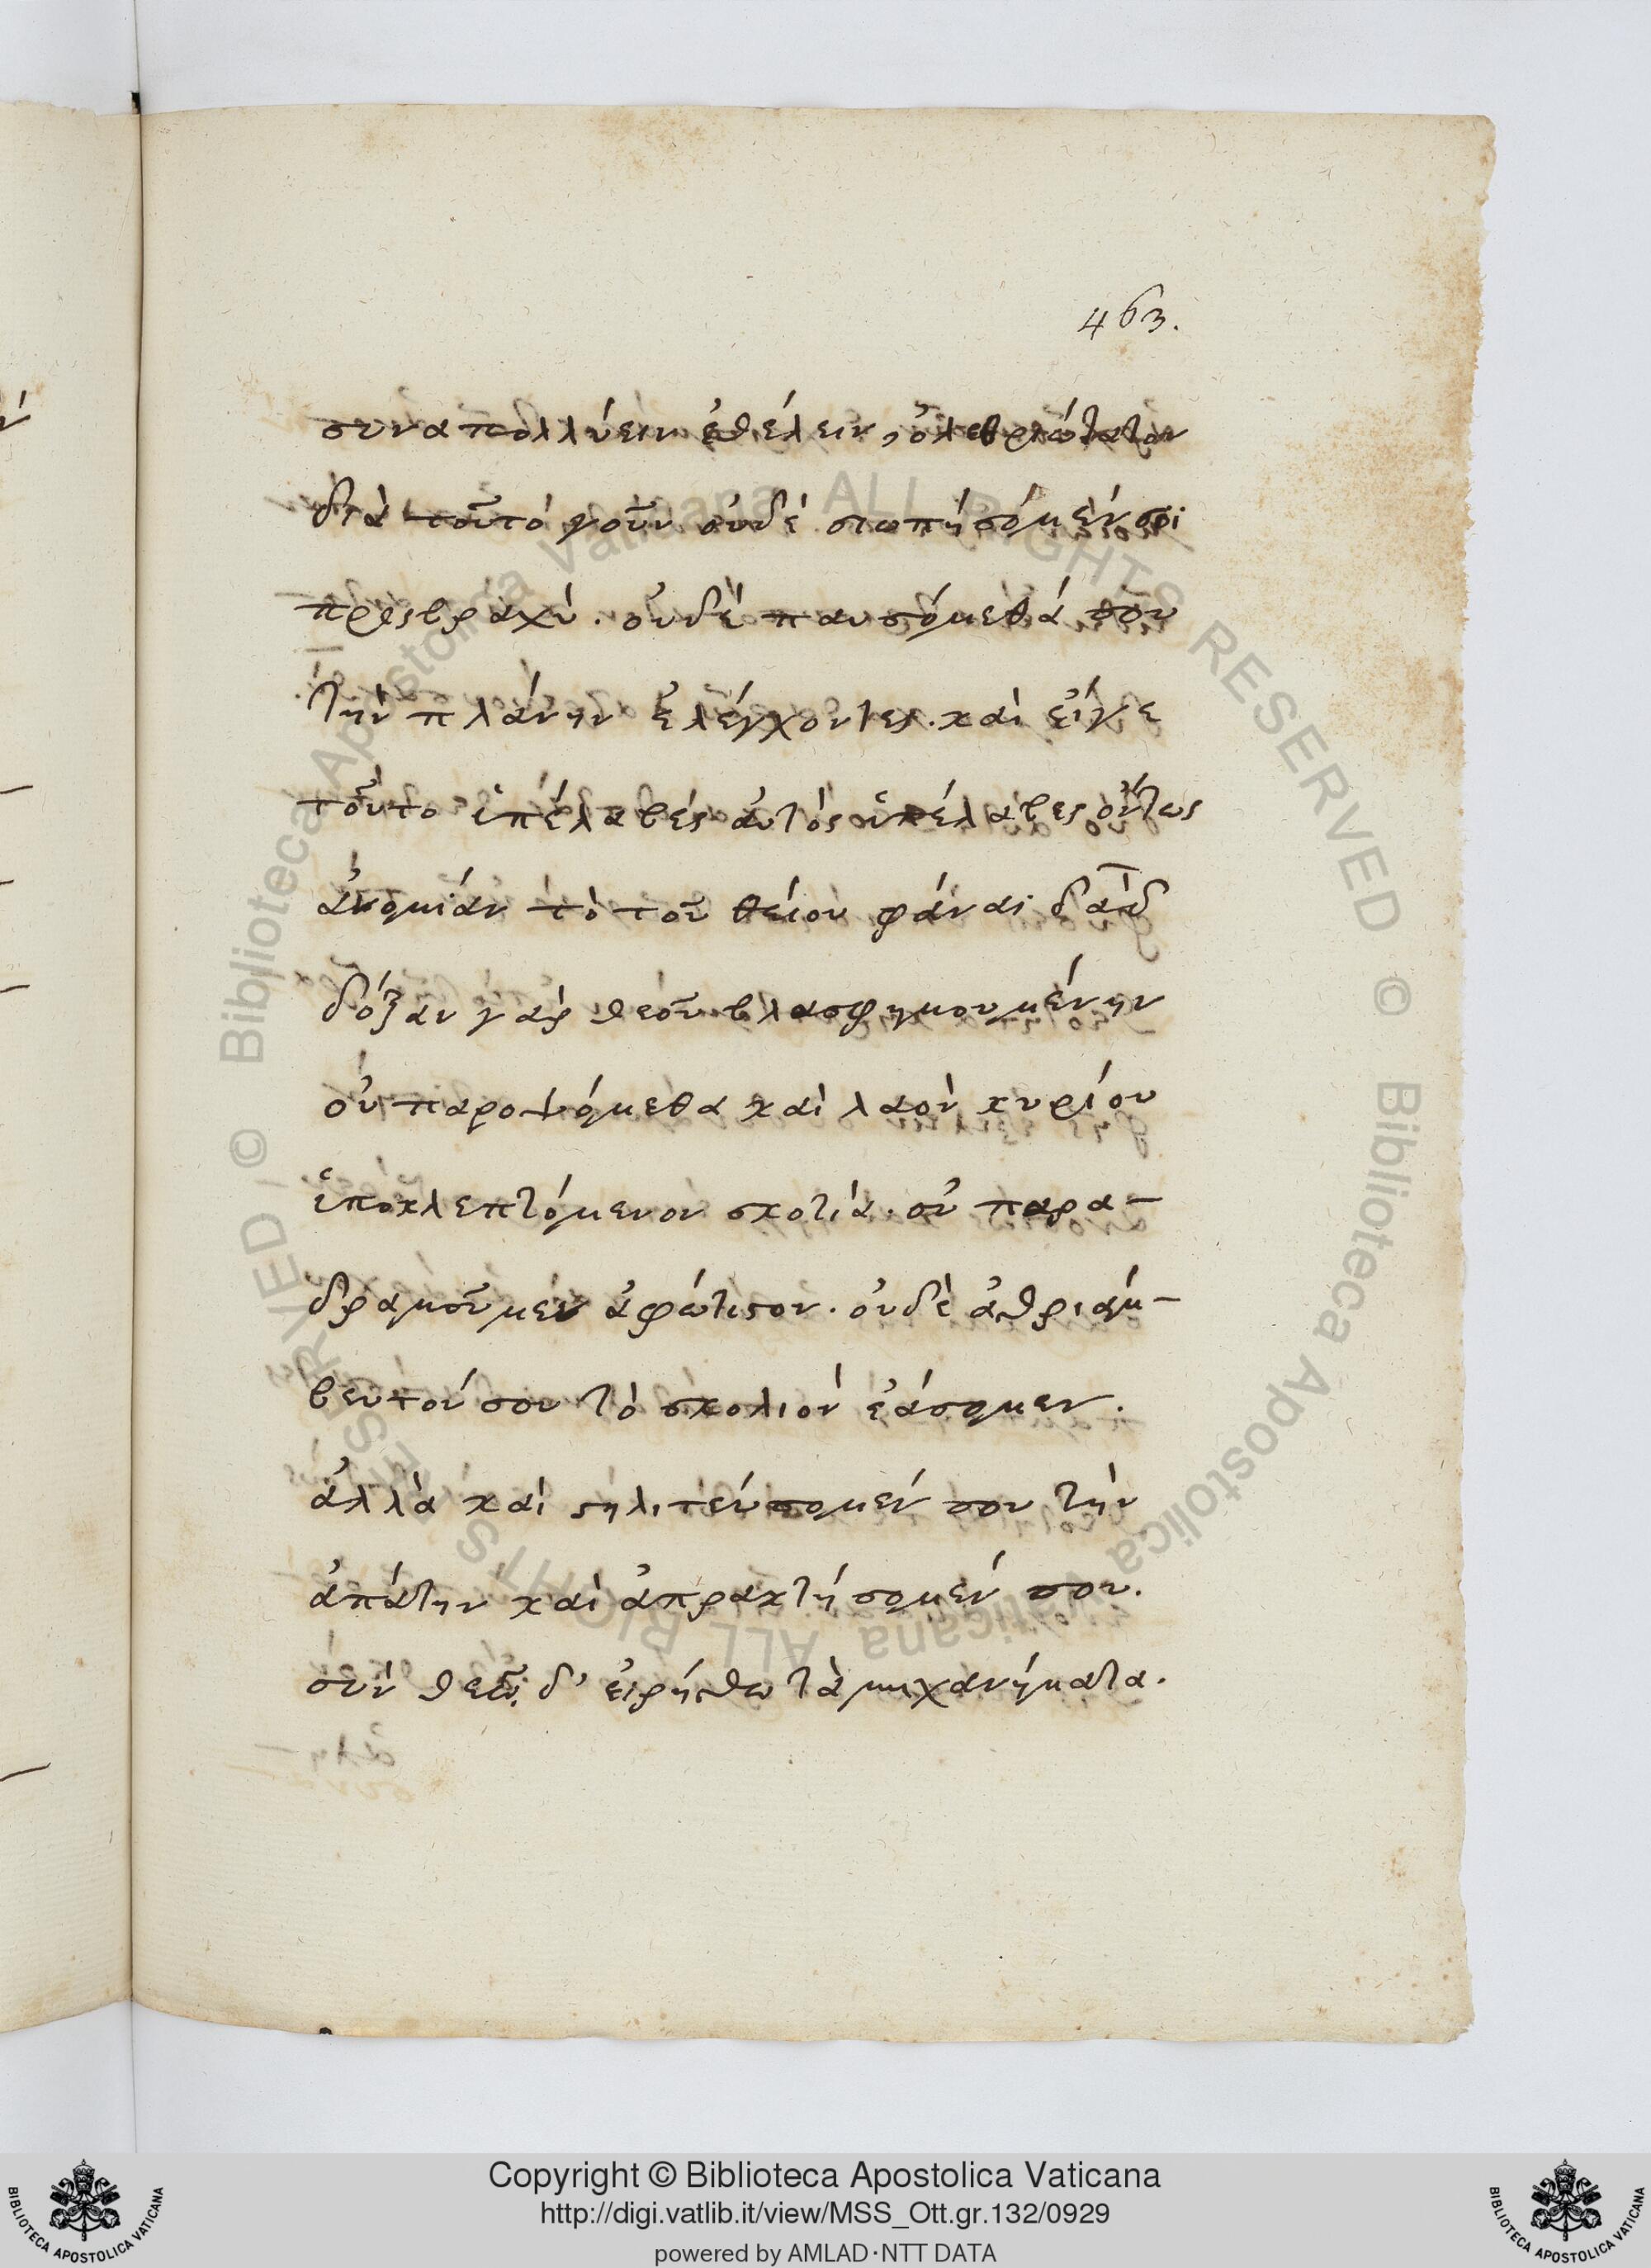 463.
συναπολλύειν ἐθέλειν, ὀλεθριώτατον
διὰ τοῦτό γοῦν οὐδὲ σιωπήσόμέν σοι
πρὸς βραχύ. οὐδὲ παυσόμεθά σου
τὴν πλάνην ἐλέγχοντες. καὶ εἴγε
τοῦτο ὑπέλαβές αὐτὸς ὑπέλαβες ὄντως
ἀνομίαν τὸ τοῦ θείου φάναι δα̅δ
δόξαν γὰρ θεοῦ βλασφημουμένην
οὐ παροψόμεθα καὶ λαὸν κυρίου
ὑποκλεπτόμενον σκοτία. οὐ παρα-
δραμοῦμεν ἀφώτιστον. οὐδὲ ἀθριάμ-
βευτόν σου τὸ σκολιὸν ἐάσομεν.
ἀλλὰ καὶ στηλιτεύσομέν σου τὴν
ἀπάτην καὶ ἀπρακτήσομέν σου.
σὺν θεῷ δ' εἰρήσθω τὰ μηχανήματα.
Copyright © Biblioteca Apostolica Vaticana
http://digi.vatlib.it/view/MSS_Ott.gr.132/0929
powered by AMLAD·NTT DATA
BIBLIOTECA APOSTOLICA VATICANA
BIBLIOTECA APOSTOLICA VATICANA
© Biblioteca Apostolica Vaticana ALL RIGHTS RESERVED
© Biblioteca Apostolica Vaticana ALL RIGHTS RESERVED